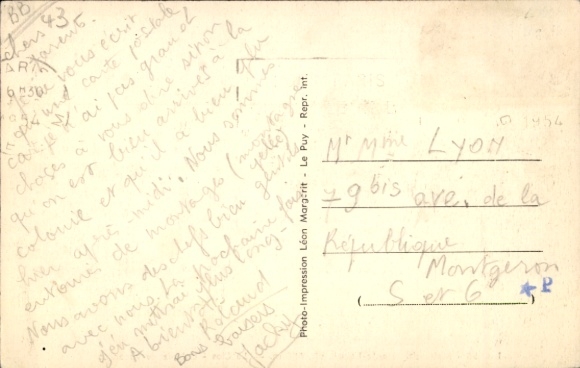 BB 43
chers parents
je vous écrit
qu'une carte postale
car je n'ai pas grand
choses à vous dire sinon
qu'on est bien arrivés à la
colonie et qu'il a bien plu
hier après-midi. Nous sommes
entourés de montages (montagne
Nous avons des chefs bien gentils
avec nous. La prochaine fois
j'en mettrai plus long.
A bientôt
Roland
Bons baisers
Jacky
Photo-Impression Léon Margerit - Le Puy - Repr. int.
Mr Mme LYON
79 bis ave. de la
République
Montgeron
(S et O)